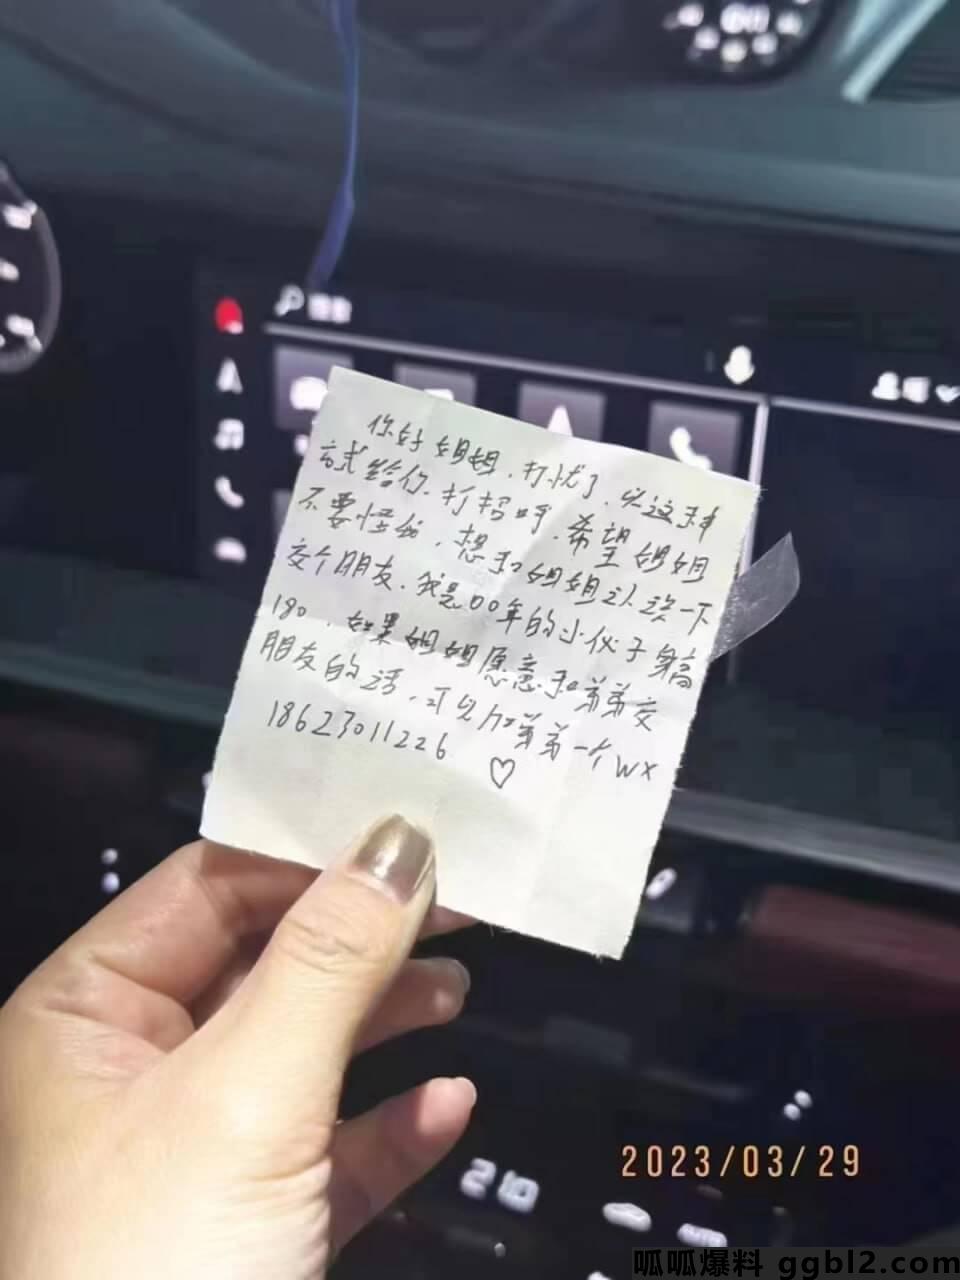 你好姐姐,打扰了,以这种
方式给你打招呼,希望姐姐
不要怪我,想和姐姐认识一下
交个朋友,我是00年的小伙子身高
180,如果姐姐愿意和弟弟交
朋友的话,可以加弟弟一个WX
18623011226
2023/03/29
21.0
AUTO
呱呱爆料 ggbl2.com